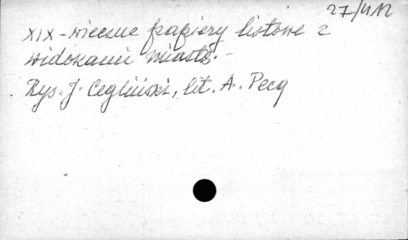 27/412
XIX-wieczne papiery listowe z
widokami miast.-
Rys. J. Cegliński, lit. A. Pecq